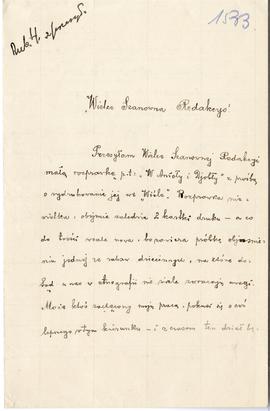 1533
Wielce Szanowna Redakcyo!
Przesyłam Wielce Szanownej Redakcyi
małą rozprawkę p.t.: „W Anioły i Djabły" z prośbą
o wydrukowanie jej we „Wiśle". Rozprawka nie-
wielka, obejmie zaledwie 2 kartki druku – a co
do treści wcale nowa, bo zawiera próbkę objaśnie-
nia jednej ze zabaw dziecinnych, na które do-
tąd u nas w etnografii nie wiele zwracają uwagi.
Może ktoś zachęcony moją pracą, pokusi się o coś
lepszego w tym kierunku – i z czasem ten dział bę-